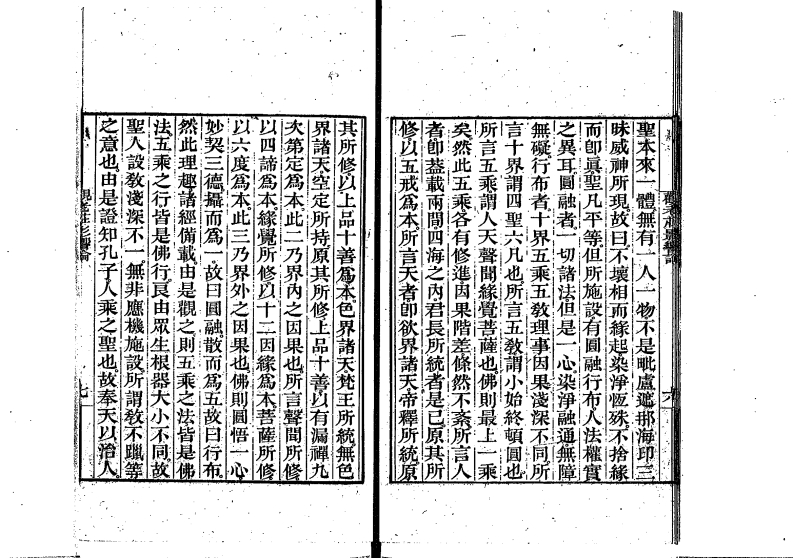 聖本來一體無有一人一物不是毗盧遮那海印三
昧威神所現故曰不壞相而緣起染淨恆殊不捨緣
而即眞聖凡平等但所施設有圓融行布人法權實
之異耳圓融者一切諸法但是一心染淨融通無障
無礙行布者十界五乘五教理事因果淺深不同所
言十界謂四聖六凡也所言五教謂小始終頓圓也
所言五乘謂人天聲聞緣覺菩薩也佛則最上一乘
矣然此五乘各有修進因果階差條然不紊所言人
者即蓋載兩間四海之內君長所統者是已原其所
修以五戒爲本所言天者即欲界諸天帝釋所統原
觀老莊影響論
六
其所修以上品十善爲本色界諸天梵王所統無色
界諸天空定所持原其所修上品十善以有漏禪九
次第定爲本此二乃界內之因果也所言聲聞所修
以四諦爲本緣覺所修以十二因緣爲本菩薩所修
以六度爲本此三乃界外之因果也佛則圓悟一心
妙契三德攝而爲一故曰圓融散而爲五故曰行布
然此理趣諸經備載由是觀之則五乘之法皆是佛
法五乘之行皆是佛行良由眾生根器大小不同故
聖人設教淺深不一無非應機施設所謂教不躐等
之意也由是證知孔子人乘之聖也故奉天以治人
觀老莊影響論
七